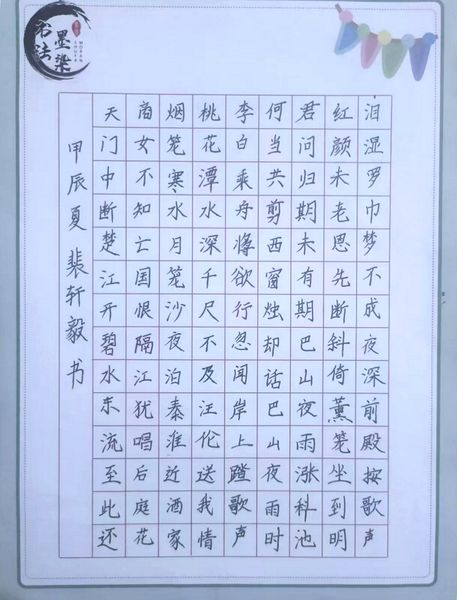 墨染
书法
泪湿罗巾梦不成夜深前殿按歌声
红颜未老恩先断斜倚薰笼坐到明
君问归期未有期巴山夜雨涨科池
何当共剪西窗烛却话巴山夜雨时
李白乘舟将欲行忽闻岸上踏歌声
桃花潭水深千尺不及汪伦送我情
烟笼寒水月笼沙夜泊秦淮近酒家
商女不知亡国恨隔江犹唱后庭花
天门中断楚江开碧水东流至此还
甲辰夏 裴轩毅书